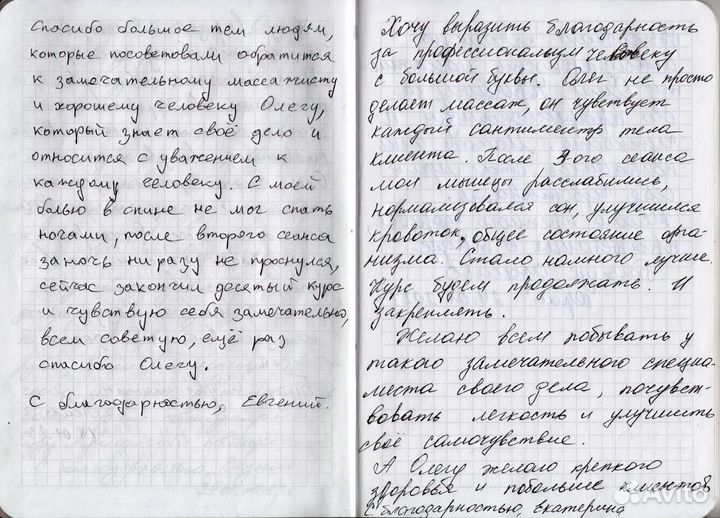 Спасибо большое тем людям,
которые посоветовали обратится
к замечательному массажисту
и хорошему человеку Олегу,
который знает своё дело и
относится с уважением к
каждому человеку. С моей
болью в спине не мог спать
ночами, после второго сеанса
за ночь ни разу не проснулся,
сейчас закончил десятый курс
и чувствую себя замечательно,
всем советую, ещё раз
спасибо Олегу.
С благодарностью, Евгений.
Хочу выразить благодарность
за профессионализм человеку
с большой буквы. Олег не просто
делает массаж, он чувствует
каждый сантиментр тела
клиента. После 3ого сеанса
мои мышцы расслабились,
нормализовался сон, улучшился
кровоток, общее состояние орга-
низма. Стало намного лучше.
Курс будем продолжать. И
закреплять.
Желаю всем побывать у
такого замечательного специа-
листа своего дела, почувст-
вовать легкость и улучшить
своё самочувствие.
А Олегу желаю крепкого
здоровья и побольше клиентов
С благодарностью, Екатерина
Avito